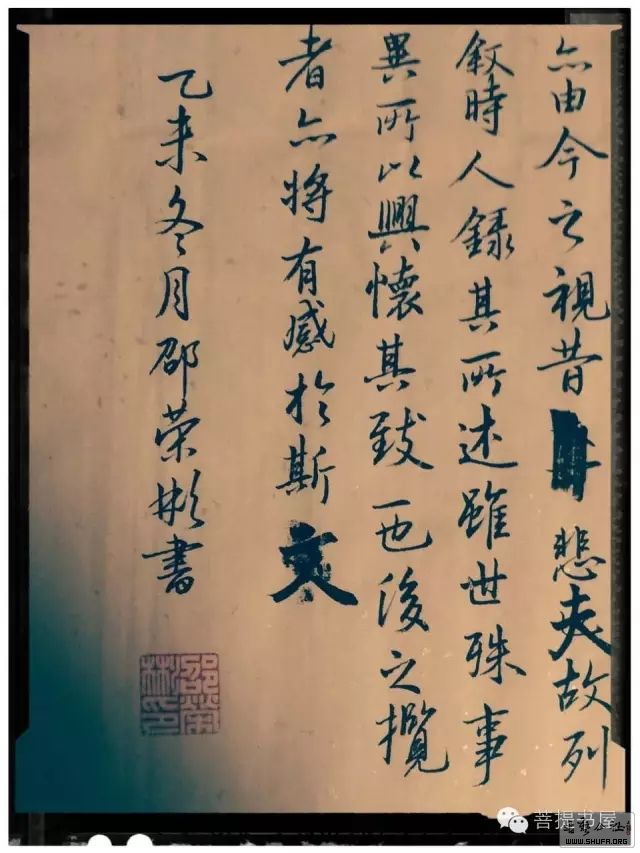 亦由今之視昔悲夫故列
叙時人録其所述雖世殊事
異所以興懷其致一也後之攬
者亦将有感於斯文
乙未冬月邵荣彬書
邵榮彬印
菩提书屋
WWW.SHUFA.ORG